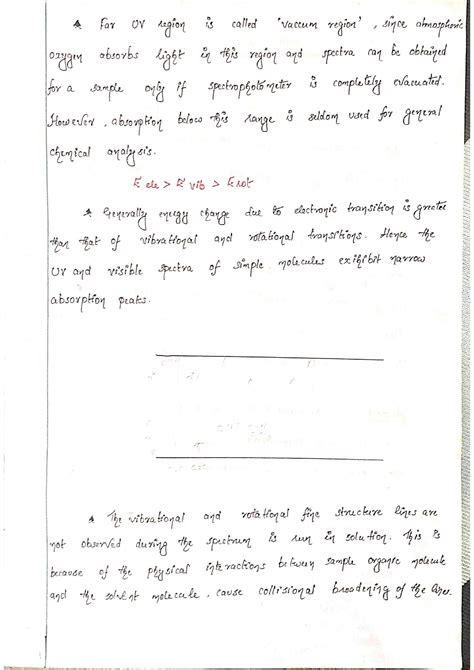 * Far UV region is called 'vaccum region', since atmospheric
oxygen absorbs light in this region and spectra can be obtained
for a sample only if spectrophotometer is completely evacuated.
However, absorption below this range is seldom used for general
chemical analysis.
E ele > E vib > E rot
* Generally energy change due to electronic transition is greater
than that of vibrational and rotational transitions. Hence the
UV and visible spectra of simple molecules exhibit narrow
absorption peaks.
* The vibrational and rotational fine structure lines are
not observed during the spectrum is run in solution. This is
because of the physical interactions between sample organic molecule
and the solvent molecule, cause collisional broadening of the lines.